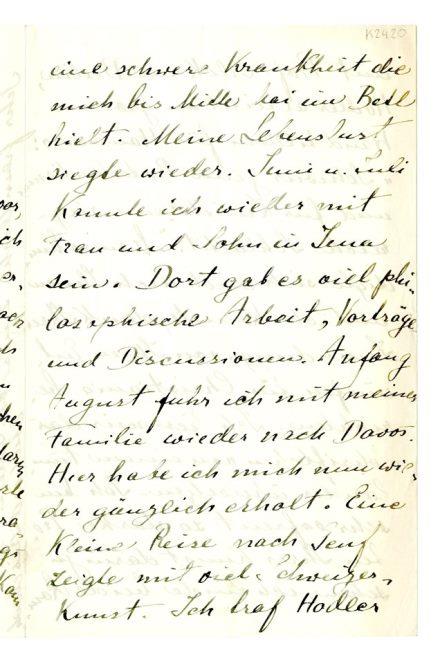 K2420
eine schwere Krankheit die
mich bis Mitte Mai im Bett
hielt. Meine Lebenslust
siegte wieder. Juni u. Juli
konnte ich wieder mit
Frau und Sohn in Jena
sein. Dort gab es viel phi-
losophische Arbeit, Vorträge
und Discussionen. Anfang
August fuhr ich mit meiner
Familie wieder nach Davos.
Hier habe ich mich nun wie-
der gänzlich erholt. Eine
kleine Reise nach Genf
zeigte mir viel Schweizer-
kunst. Ich traf Hodler